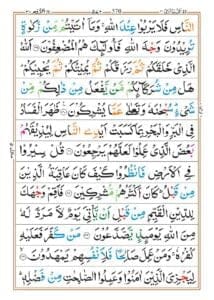 النَّاسِ فَلَا يَرْبُوْا عِنْدَ اللّٰهِ ۚ وَمَآ اٰتَيْتُمْ مِّنْ زَكٰوةٍ
تُرِيْدُوْنَ وَجْهَ اللّٰهِ فَاُولٰٓئِكَ هُمُ الْمُضْعِفُوْنَ اَللّٰهُ
الَّذِيْ خَلَقَكُمْ ثُمَّ رَزَقَكُمْ ثُمَّ يُمِيْتُكُمْ ثُمَّ يُحْيِيْكُمْ
هَلْ مِنْ شُرَكَآئِكُمْ مَّنْ يَّفْعَلُ مِنْ ذٰلِكُمْ مِّنْ
شَيْءٍ سُبْحٰنَهٗ وَتَعٰلٰى عَمَّا يُشْرِكُوْنَ ظَهَرَ الْفَسَادُ
فِي الْبَرِّ وَالْبَحْرِ بِمَا كَسَبَتْ اَيْدِي النَّاسِ لِيُذِيْقَهُمْ
بَعْضَ الَّذِيْ عَمِلُوْا لَعَلَّهُمْ يَرْجِعُوْنَ قُلْ سِيْرُوْا
فِي الْاَرْضِ فَانْظُرُوْا كَيْفَ كَانَ عَاقِبَةُ الَّذِيْنَ
مِنْ قَبْلُ كَانَ اَكْثَرُهُمْ مُّشْرِكِيْنَ فَاَقِمْ وَجْهَكَ
لِلدِّيْنِ الْقَيِّمِ مِنْ قَبْلِ اَنْ يَّاْتِيَ يَوْمٌ لَّا مَرَدَّ لَهٗ
مِنَ اللّٰهِ يَوْمَئِذٍ يَّصَّدَّعُوْنَ مَنْ كَفَرَ فَعَلَيْهِ
كُفْرُهٗ وَمَنْ عَمِلَ صَالِحًا فَلِاَنْفُسِهِمْ يَمْهَدُوْنَ
لِيَجْزِيَ الَّذِيْنَ اٰمَنُوْا وَعَمِلُوا الصّٰلِحٰتِ مِنْ فَضْلِهٖ